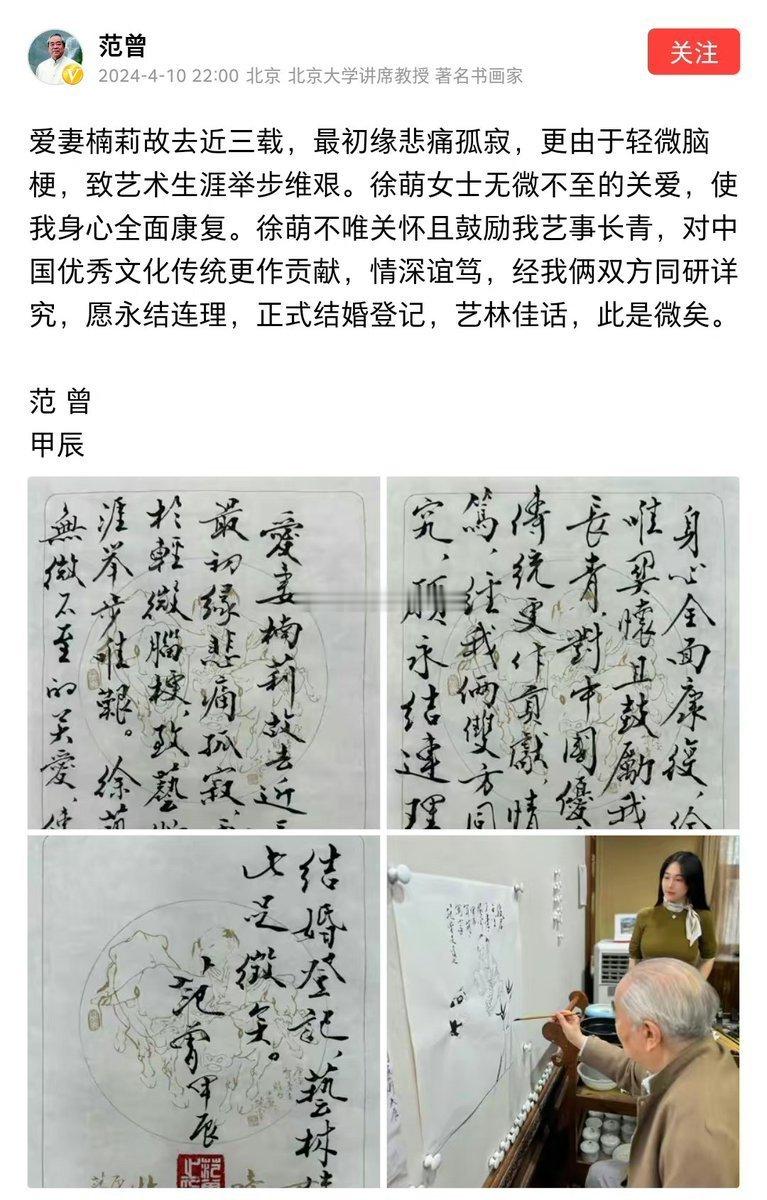 范曾
2024-4-10 22:00 北京 北京大学讲席教授 著名书画家
关注
爱妻楠莉故去近三载，最初缘悲痛孤寂，更由于轻微脑
梗，致艺术生涯举步维艰。徐萌女士无微不至的关爱，使
我身心全面康复。徐萌不唯关怀且鼓励我艺事长青，对中
国优秀文化传统更作贡献，情深谊笃，经我俩双方同研详
究，愿永结连理，正式结婚登记，艺林佳话，此是微矣。
范 曾
甲辰
愛妻楠莉故去近
最初緣悲痛孤寂，
於輕微腦梗，致藝
涯举步唯艱。徐萌
無微不至的关愛，使
身心全面康復，徐
唯関懷且鼓勵我
長青，對中國優
傳統更作貢獻，情
篤，經我俩雙方同
究，願永结連理
结婚登記，藝林
此足微矣。
范曾甲辰